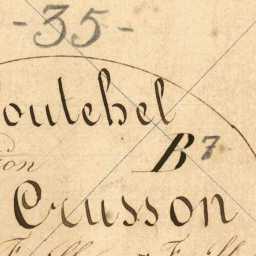 -35-
outchel
B7
ion
Crusson